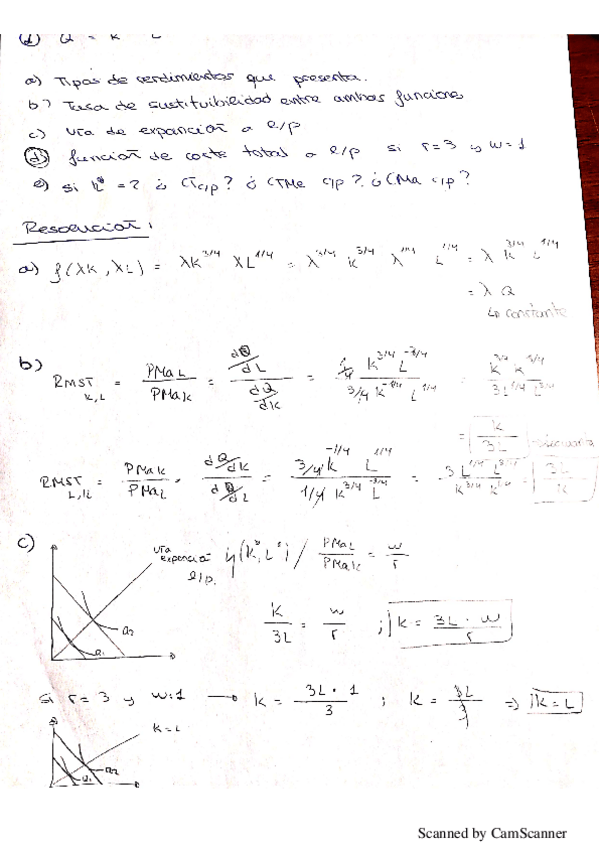 (d) Q = K L
a) Tipos de rendimientos que presenta.
b) Tasa de sustituibilidad entre ambas funciones
c) Vía de expansión a l/p
d) función de coste total a l/p si r=3 y w=1
e) si K* = 2 ¿CTc/p? ¿CTMe c/p? ¿CMa c/p?
Resolución:
a) f(λK, λL) = λK^3/4 λL^1/4 = λ^3/4 K^3/4 λ^1/4 L^1/4 = λ K^3/4 L^1/4
= λQ
↳ constante
b) RMST K,L = PMaL/PMaK = (dQ/dL)/(dQ/dK) = (1/4 K^3/4 L^-3/4)/(3/4 K^-1/4 L^1/4) = (K^3/4 K^1/4)/(3L^1/4 L^3/4)
= K/3L
RMST L,K = PMaK/PMaL = (dQ/dK)/(dQ/dL) = (3/4 K^-1/4 L^1/4)/(1/4 K^3/4 L^-3/4) = (3L^1/4 L^3/4)/(K^3/4 K^1/4) = 3L/K
c) vía expansión l/p. (K*, L*) / PMaL/PMaK = w/r
K/3L = w/r ; K = 3L · w / r
Q2
Q1
si r=3 y w=1 → K = 3L · 1 / 3 ; K = 3L/3 ⇒ K = L
K=L
Q2
Q1
Scanned by CamScanner